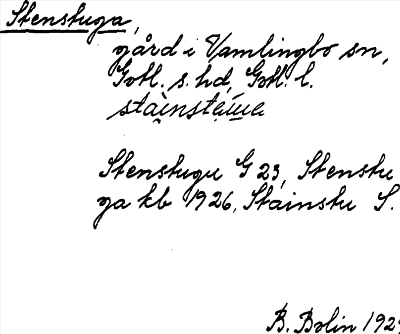 Stenstuga,
gård i Vamlingbo sn,
Gotl. s. hd, Gotl. l.
Stenstugu G 23, Stenstu
ga kb 1926, Stainstu S.
B. Bolin